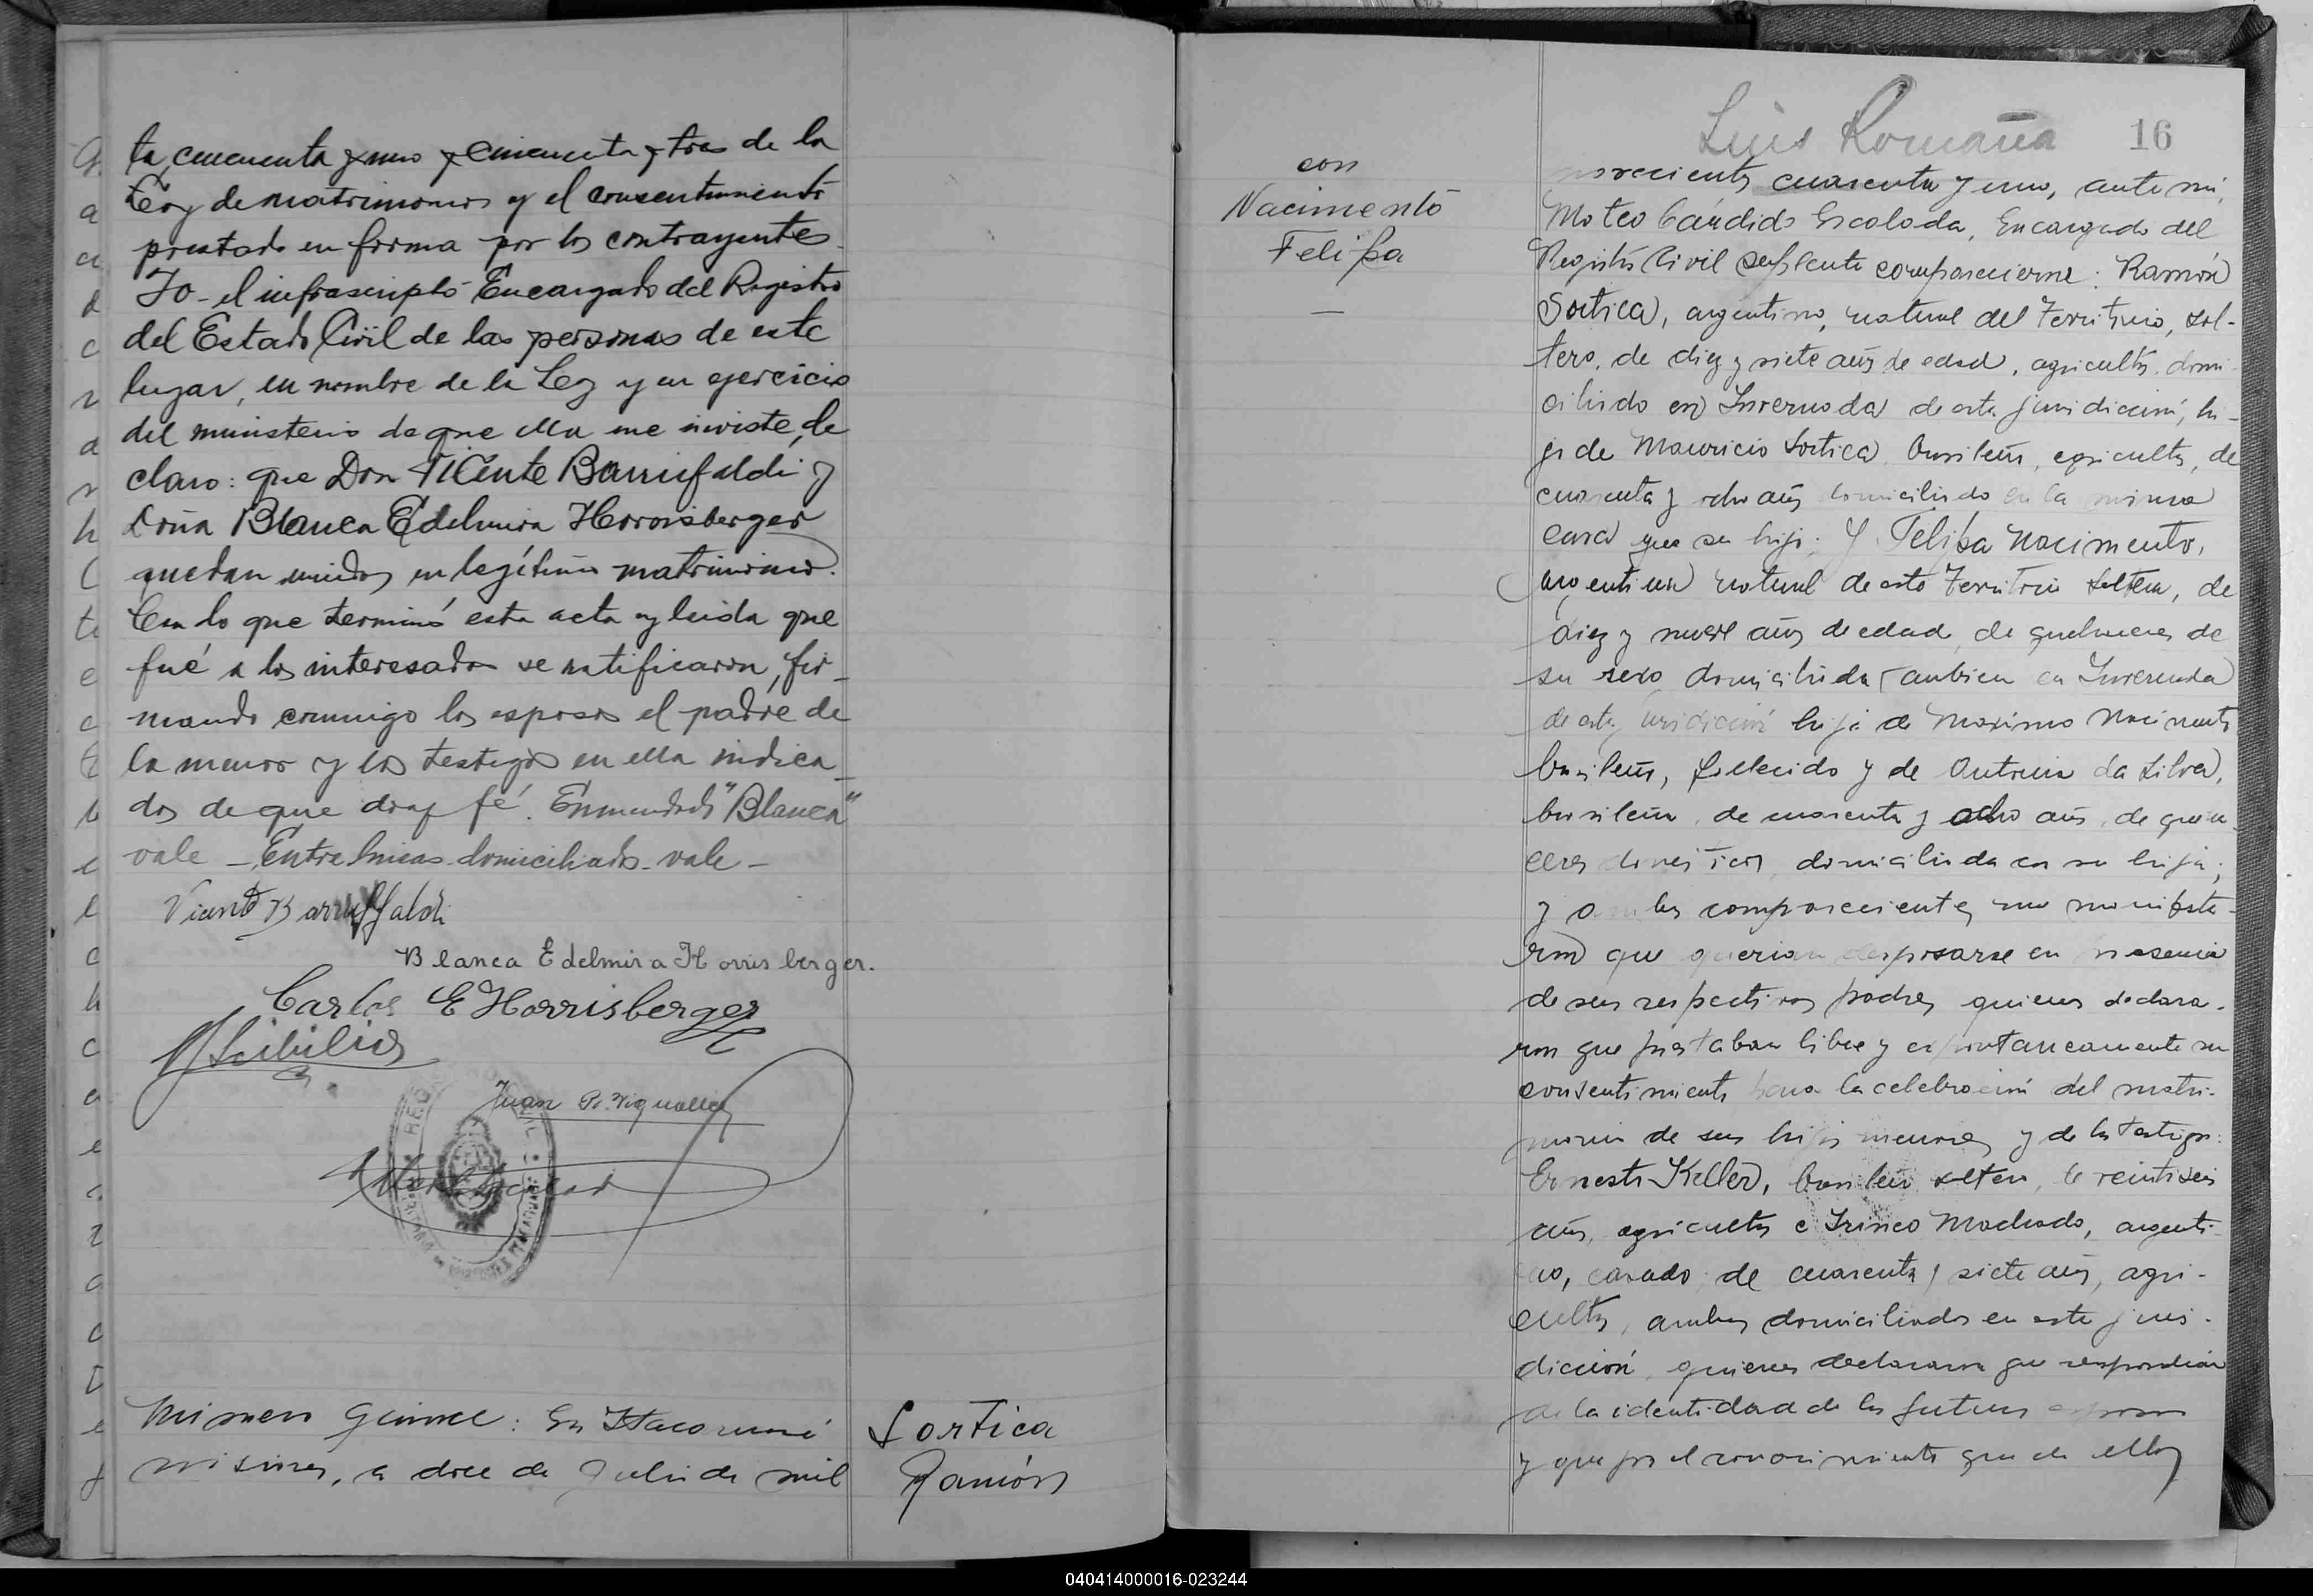 ta, cincuenta y uno y cincuenta y tres de la
Ley de matrimonios y el consentimiento
prestado en forma por los contrayentes
Yo el infrascripto Encargado del Registro
del Estado Civil de las personas de este
lugar, en nombre de la Ley y en ejercicio
del ministerio de que ella me inviste, de
claro: que Don Vicente Barruffaldi y
Doña Blanca Edelmira Horrisberger
quedan unidos en legítimo matrimonio.
Con lo que terminó esta acta y leida que
fué a los interesados se ratificaron, fir-
mando conmigo los esposos el padre de
la menor y los testigos en ella indica-
dos de que doy fé. Enmendado "Blanca"
vale - Entre lineas - domiciliado - vale -
Vicente Barruffaldi
Blanca Edelmira Horrisberger.
Carlos E Horrisberger
Juan
Número quince: En Itacaruaré
Misiones, a doce de Julio de mil
Sortica
Ramón
con
Nacimento
Felipa
—
Luis Romaña 16
novecientos cuarenta y uno, ante mi,
Mateo Cándido Escalada, Encargado del
Registro Civil suplente comparecieron: Ramón
Sortica, argentino, natural del Territorio, sol-
tero, de diez y siete años de edad, agricultor, domi-
ciliado en Invernada de esta juridicción, hi-
jo de Mauricio Sortica, brasileño, agricultor, de
cuarenta y ocho años domiciliado en la misma
casa que su hijo; Y Felipa Nacimento,
argentina natural de este Territorio soltera, de
diez y nueve años de edad, de quehaceres de
su sexo domiciliada tambien en Invernada
de esta juridicción hija de Maximo Nacimento
brasileño, fallecido y de Antonia da Silva,
brasileña, de cuarenta y ocho años, de queha-
ceres domésticos, domiciliada con su hija;
y ambos comparecientes me manifesta-
ron que querian desposarse en presencia
de sus respectivos padres quienes declara-
ron que prestaban libre y espontaneamente su
consentimiento para la celebración del matri-
monio de sus hijos menores y de los testigos:
Ernesto Keller, brasileño soltero, de veintiseis
años, agricultor e Irineo Machado, argenti-
no, casado, de cuarenta y siete años, agri-
cultor, ambos domiciliados en esta juris-
dicción, quienes declararon que respondian
de la identidad de los futuros esposos
y que por el conocimiento que de ellos
040414000016-023244